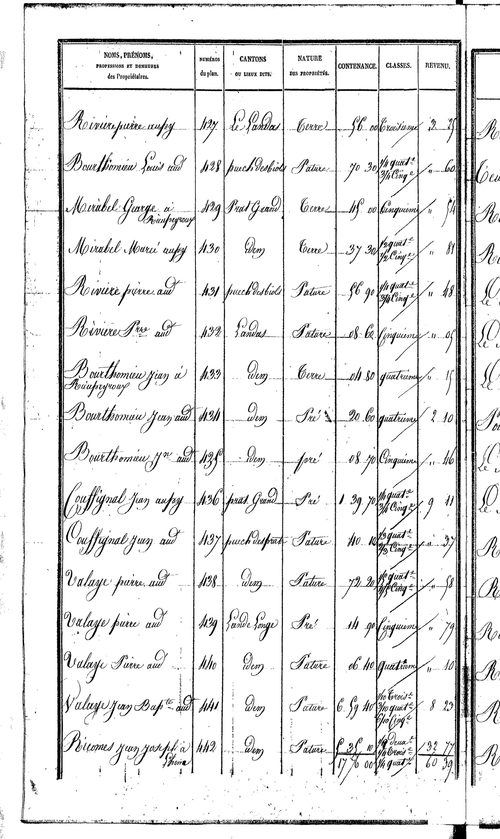 NOMS, PRÉNOMS, PROFESSIONS ET DEMEURES des Propriétaires. NUMÉROS du plan. CANTONS OU LIEUX DITS. NATURE DES PROPRIÉTÉS. CONTENANCE. CLASSES. REVENU.
Rivière pierre aupy 427 Le Landas Terre 56 00 Troisieme 2 35
Bourthomieu Louis aud 428 puech desbiols Pature 70 30 1/4 quat. 3/4 Cinq.e " 60
Mirabel George à Rieupeyroux 429 Prat Grand Terre 45 00 Cinquieme " 54
Mirabel Marie aupy 430 idem Terre 37 30 1/2 quat. 1/2 Cinq.e " 81
Rivière pierre aud 431 puech desbiols Pature 56 90 1/4 quat. 3/4 Cinq.e " 48
Rivière Pre aud 432 Landas Pature 08 60 Cinquieme " 05
Bourthomieu Jean à Rieupeyroux 433 idem Terre 04 80 quatrieme " 15
Bourthomieu Jean aud 434 idem Pré 20 60 quatrieme 2 10
Bourthomieu Jn aud 435 idem pré 08 70 Cinquieme " 46
Couffignal Jean aupy 436 prat Grand Pré 1 39 70 1/4 quat. 3/4 Cinq.e 9 11
Couffignal Jean aud 437 Pature 40 10 quat. Cinq.e " 37
Valaye pierre aud 438 idem Pature 72 20 quat. Cinq.e " 58
Valaye pierre aud 439 Lande Longe Pré 14 90 Cinquieme " 79
Valaye Pierre aud 440 idem Pature 06 40 Quatrieme " 10
Valaye Jean Bapte aud 441 idem Pature 6 59 40 Trois. quat. Cinq.e 8 23
Ricomes Jean Joseph à 442 idem Pature 5 35 10 deux. Trois. quat. 32 77
17 76 00 60 39